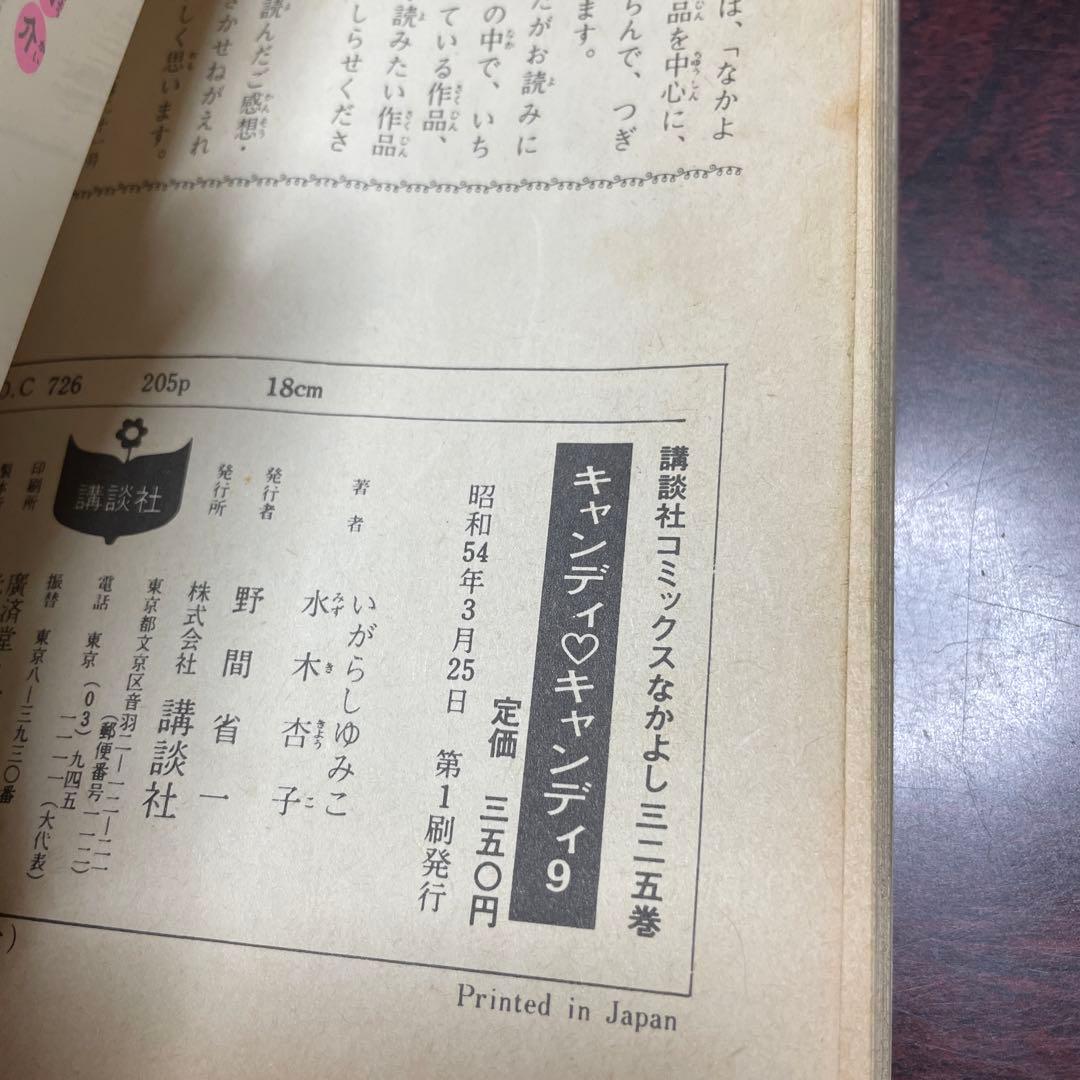 は、「なかよ
品を中心に、
らんで、つぎ
ます。
たがお読みに
の中で、いち
ている作品、
読みたい作品
しらせくださ
読んだご感想・
さかせねがえれ
しく思います。
C 726 205p 18cm
講談社コミックスなかよし 三二五巻
キャンディ♡キャンディ9
定価 三五〇円
昭和54年3月25日 第1刷発行
著者 いがらしゆみこ
水木杏子
発行者 野間省一
発行所 株式会社 講談社
東京都文京区音羽二―一二―二一
(郵便番号一一二)
電話 東京(03)九四五
一一一一(大代表)
振替 東京八―三九三〇番
印刷所 廣済堂
講談社
Printed in Japan